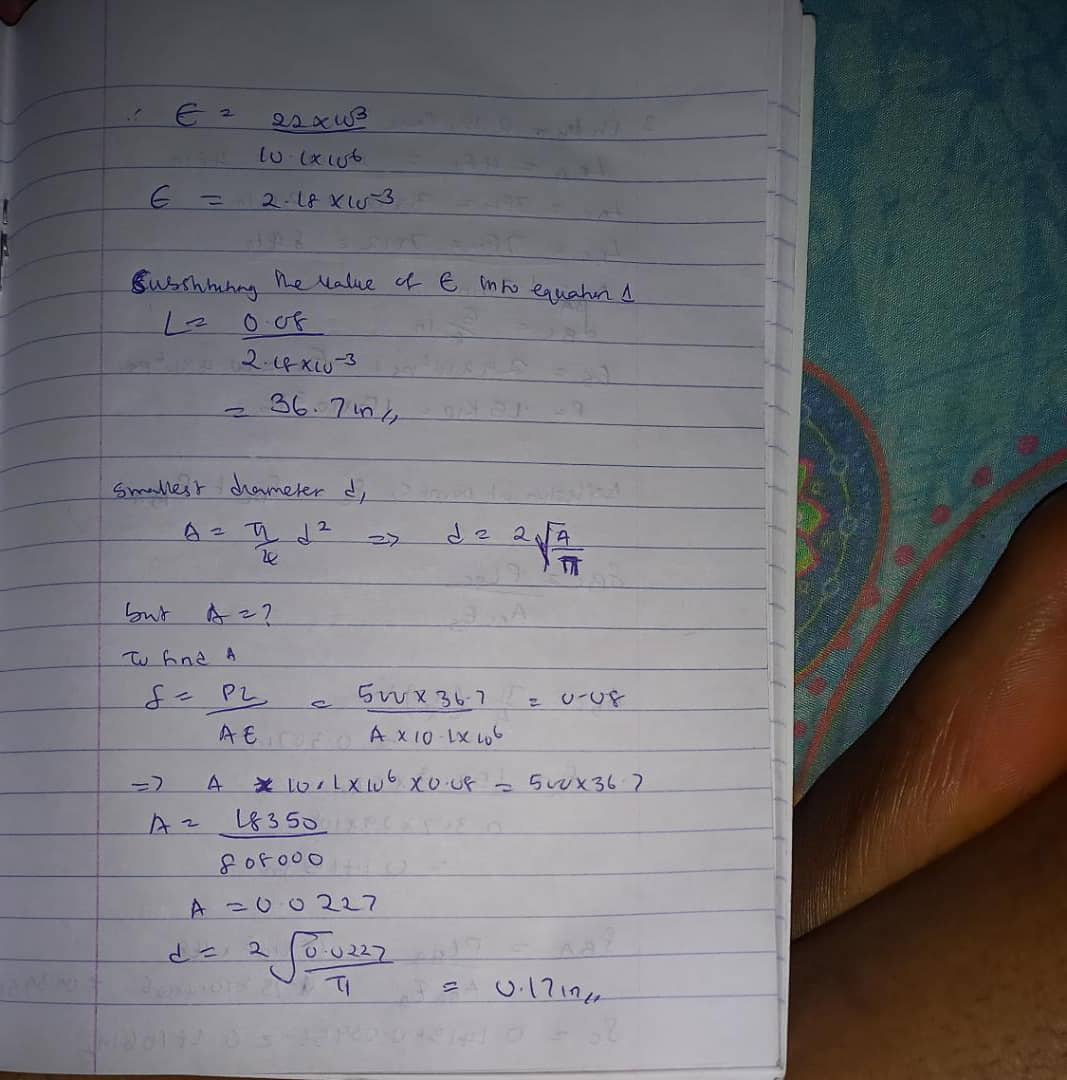 ∴ ϵ = 22x10³
10.1x10⁶
ϵ = 2.18 x10⁻³
Substituting the value of ϵ into equation 1
L = 0.08
2.18x10⁻³
= 36.7in,,
Smallest diameter d,
A = π/4 d² => d = 2√A/π
but A = ?
To find A
δ = PL = 500 x 36.7 = 0.08
AE A x 10.1x10⁶
=> A x 10.1x10⁶ x0.08 = 500x36.7
A = 18350
808000
A = 0.0227
d = 2√0.0227
π = 0.17in,,